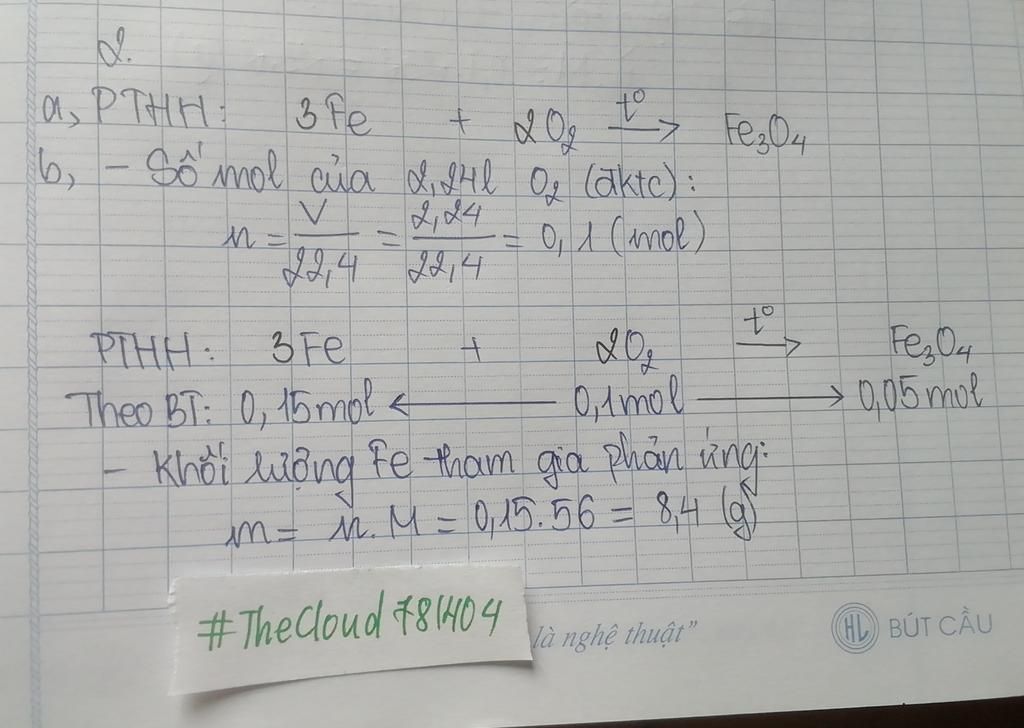 2.
a, PTHH: 3Fe + 2O₂ t° → Fe₃O₄
b, - Số mol của 2,24l O₂ (đktc):
n = V/22,4 = 2,24/22,4 = 0,1 (mol)
PTHH: 3Fe + 2O₂ t° → Fe₃O₄
Theo BT: 0,15mol ← 0,1mol → 0,05mol
- Khối lượng Fe tham gia phản ứng:
m = n.M = 0,15.56 = 8,4 (g)
#TheCloud781404
là nghệ thuật” HL BÚT CẦU